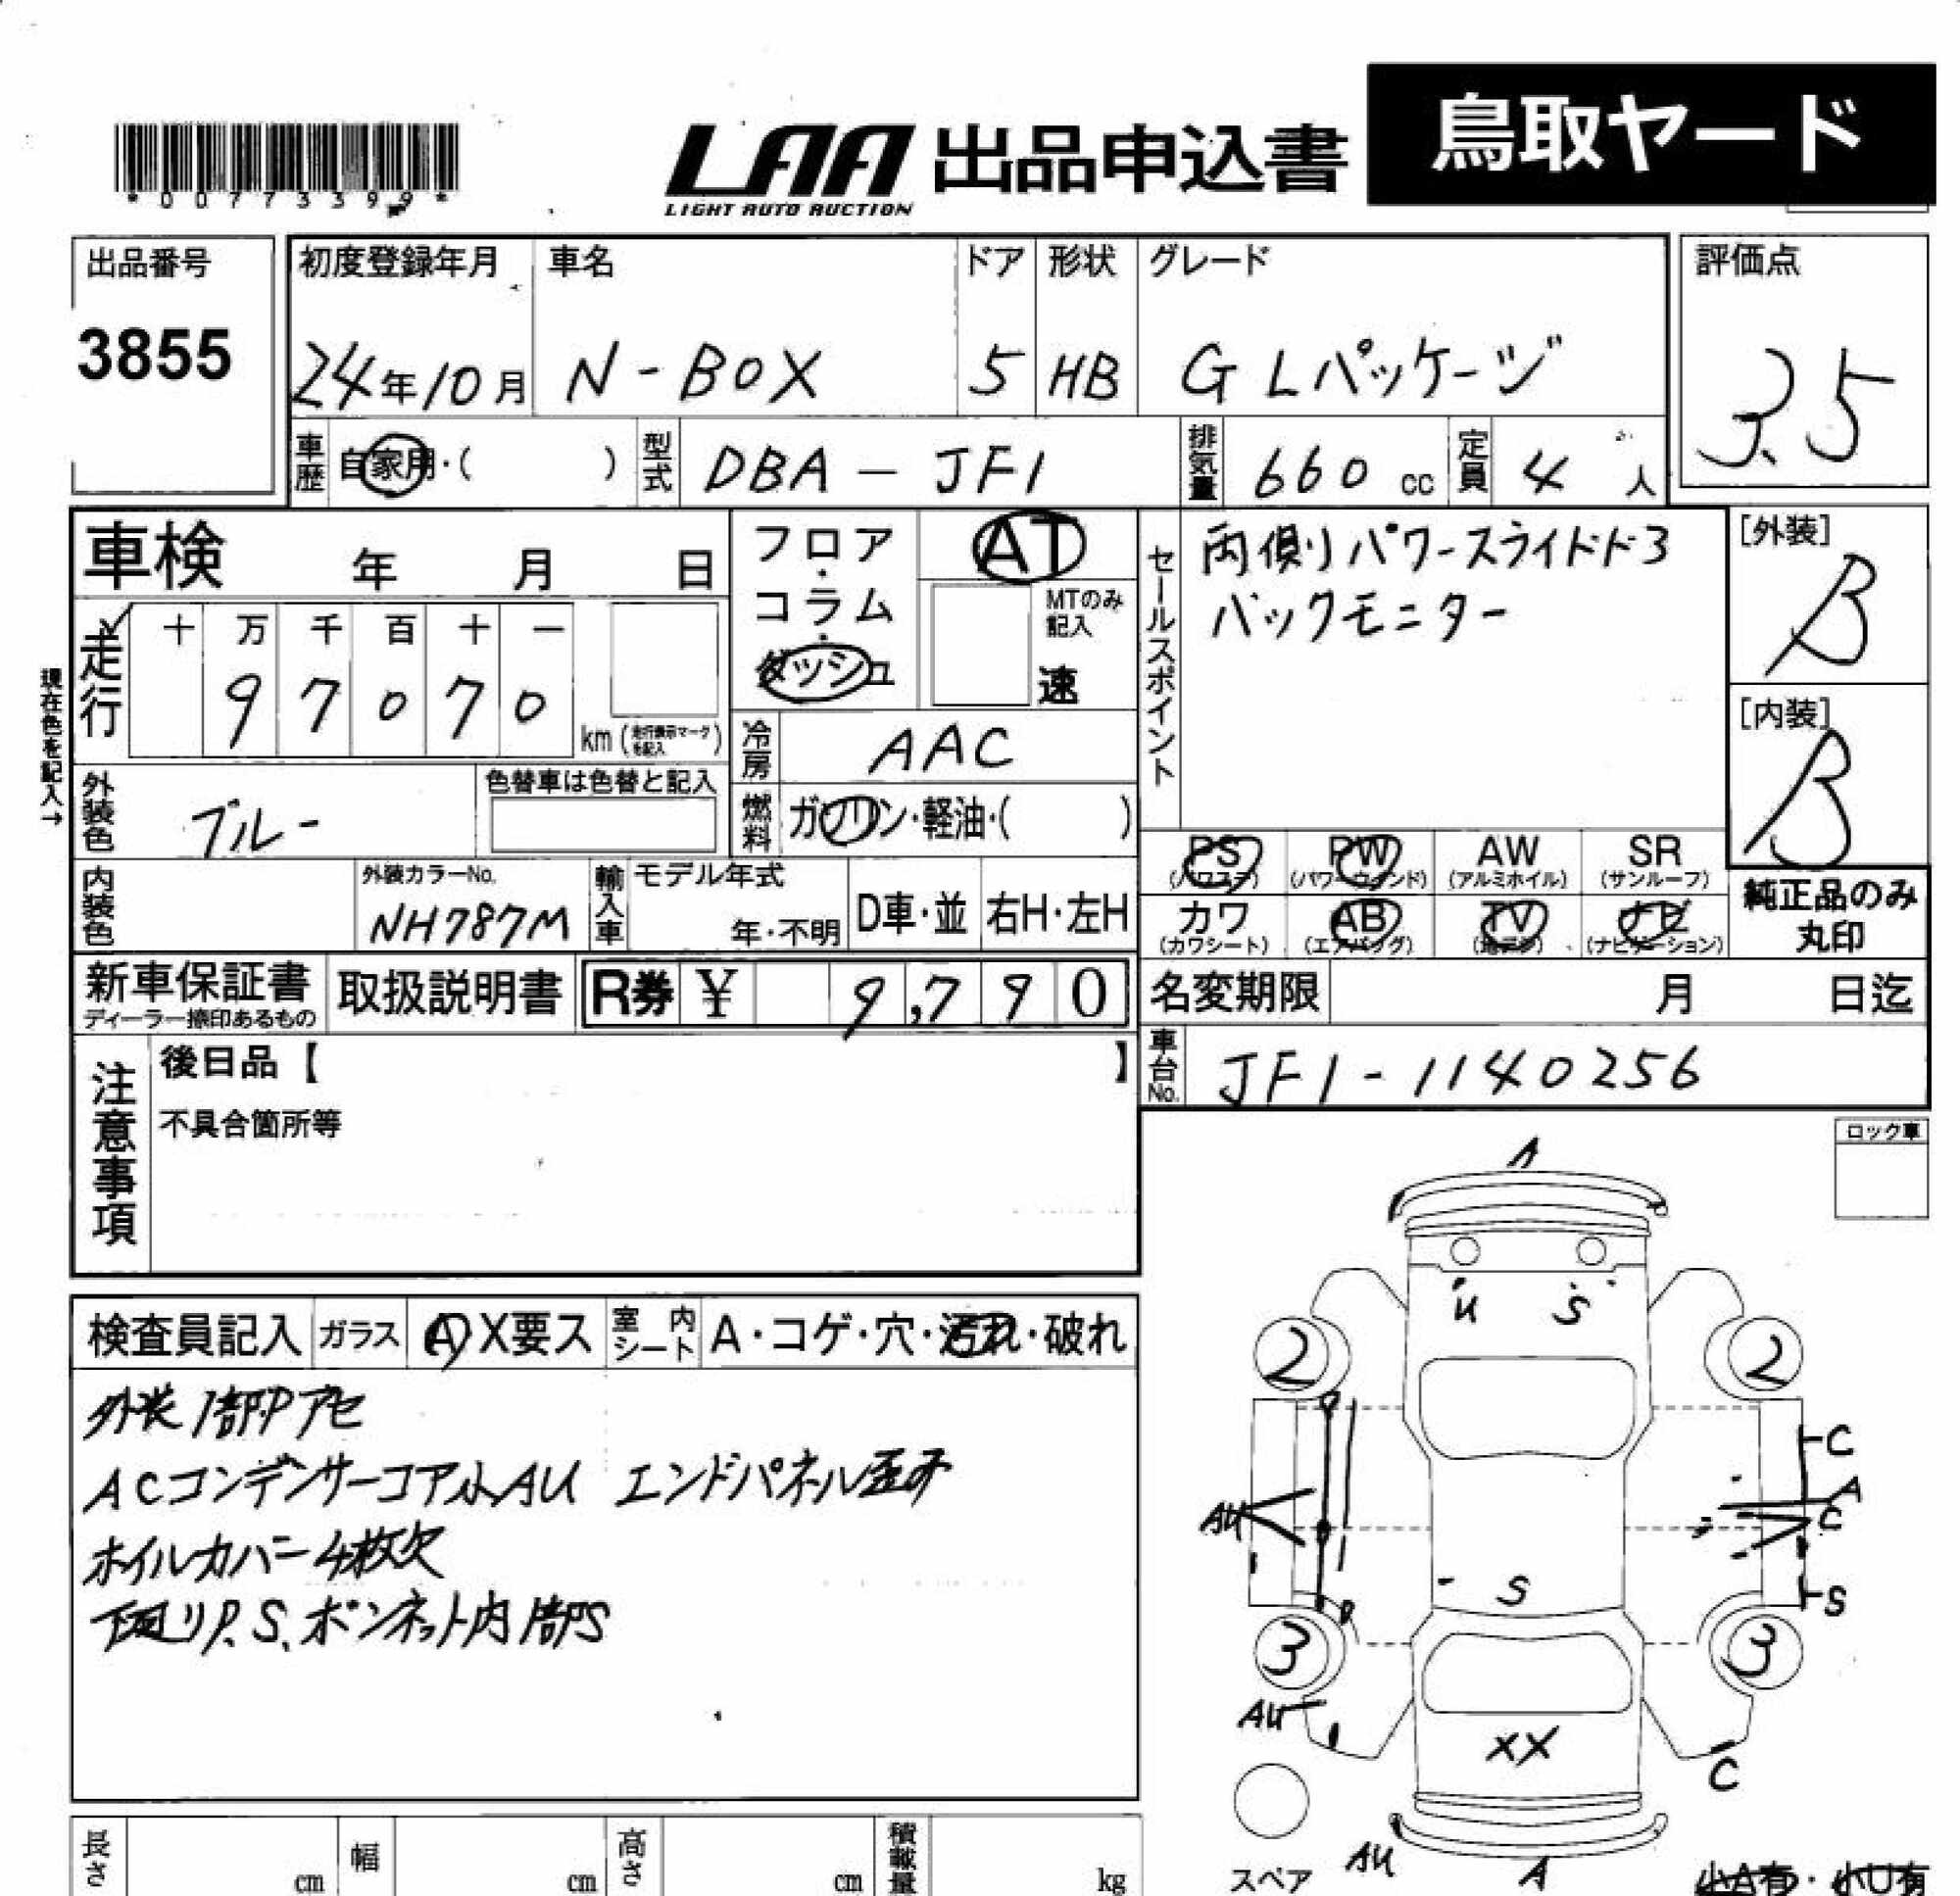 鳥取ヤード
LAA 出品申込書
LIGHT AUTO AUCTION
*00773399*
出品番号
3855
初度登録年月
24年10月
車名
N-BOX
ドア
5
形状
HB
グレード
G Lパッケージ
評価点
3.5
車歴
自家用・( )
型式
DBA-JF1
排気量
660 cc
定員
4 人
車検 年 月 日
フロア・コラム・ダッシュ
AT
MTのみ記入
速
セールスポイント
両側リパワースライドドア
バックモニター
[外装]
B
[内装]
B
現在色を記入→
走行
十 万 千 百 十 一
9 7 0 7 0
km(走行表示マークを記入)
冷房
AAC
外装色
ブルー
色替車は色替と記入
燃料
ガソリン・軽油・( )
PS
(パワステ)
PW
(パワーウィンド)
AW
(アルミホイル)
SR
(サンルーフ)
カワ
(カワシート)
AB
(エアバッグ)
TV
(地デジ)
ナビ
(ナビゲーション)
純正品のみ
丸印
内装色
外装カラーNo.
NH787M
輸入車
モデル年式
年・不明
D車・並
右H・左H
新車保証書
ディーラー捺印あるもの
取扱説明書
R券 ¥ 9,790
名変期限 月 日迄
車台No.
JF1-1140256
注意事項
後日品【 】
不具合箇所等
ロック車
検査員記入
ガラス
A X要ス
室内シート
A・コゲ・穴・汚れ・破れ
外装1部Pアセ
ACコンデンサーコア小AU エンドパネル歪み
ホイルカバー4枚欠
下廻りP.S、ボンネット内1部S
A
U S
2 2
C
A
AU
C
S
S
P
3 3
AU
XX
C
スペア
AU
A
小A有・小U有
長さ cm
幅 cm
高さ cm
積載量 kg